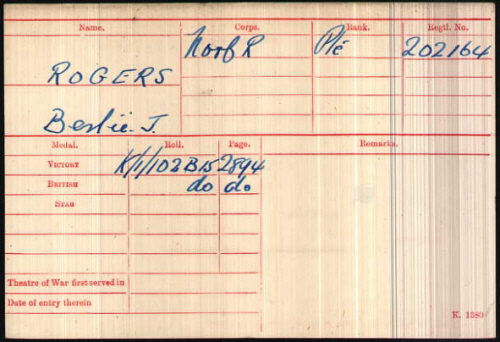 Name. Corps. Rank. Regtl. No.
ROGERS Norf R Pte 202164
Beslie J.
Medal. Roll. Page. Remarks.
VICTORY K/1/102B15 2894
BRITISH do do
STAR
Theatre of War first served in
Date of entry therein
K. 1380